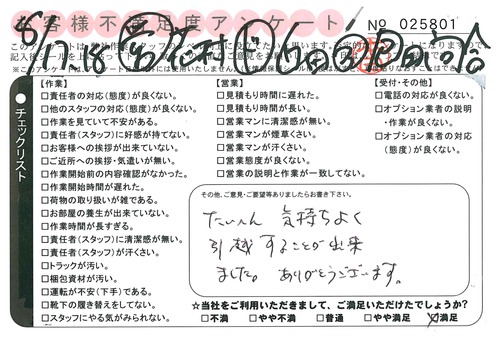 お客様不満足度アンケート
No 025801
8/7.18
チェックリスト
【作業】
□責任者の対応(態度)が良くない。
□他のスタッフの対応(態度)が良くない。
□作業を見ていて不安がある。
□責任者(スタッフ)に好感が持てない。
□お客様への挨拶が出来ていない。
□ご近所への挨拶・気遣いが無い。
□作業開始前の内容確認がなかった。
□作業開始時間が遅れた。
□荷物の取り扱いが雑である。
□お部屋の養生が出来ていない。
□作業時間が長すぎる。
□責任者(スタッフ)に清潔感が無い。
□責任者(スタッフ)が汗くさい。
□トラックが汚い。
□梱包資材が汚い。
□運転が不安(下手)である。
□靴下の履き替えをしてない。
□スタッフにやる気がみられない。
【営業】
□見積もり時間に遅れた。
□見積もり時間が長い。
□営業マンに清潔感が無い。
□営業マンが煙草くさい。
□営業マンが汗くさい。
□営業態度が良くない。
□営業の説明と作業が一致してない。
【受付・その他】
□電話の対応が良くない。
□オプション業者の説明
・作業が良くない。
□オプション業者の対応
(態度)が良くない。
その他、ご意見・ご要望等ありましたらお書き下さい。
たいへん 気持ちよく
引越することが出来
ました。ありがとうございます。
☆当社をご利用いただきまして、ご満足いただけたでしょうか?
□不満 □やや不満 □普通 □やや満足 ☑満足